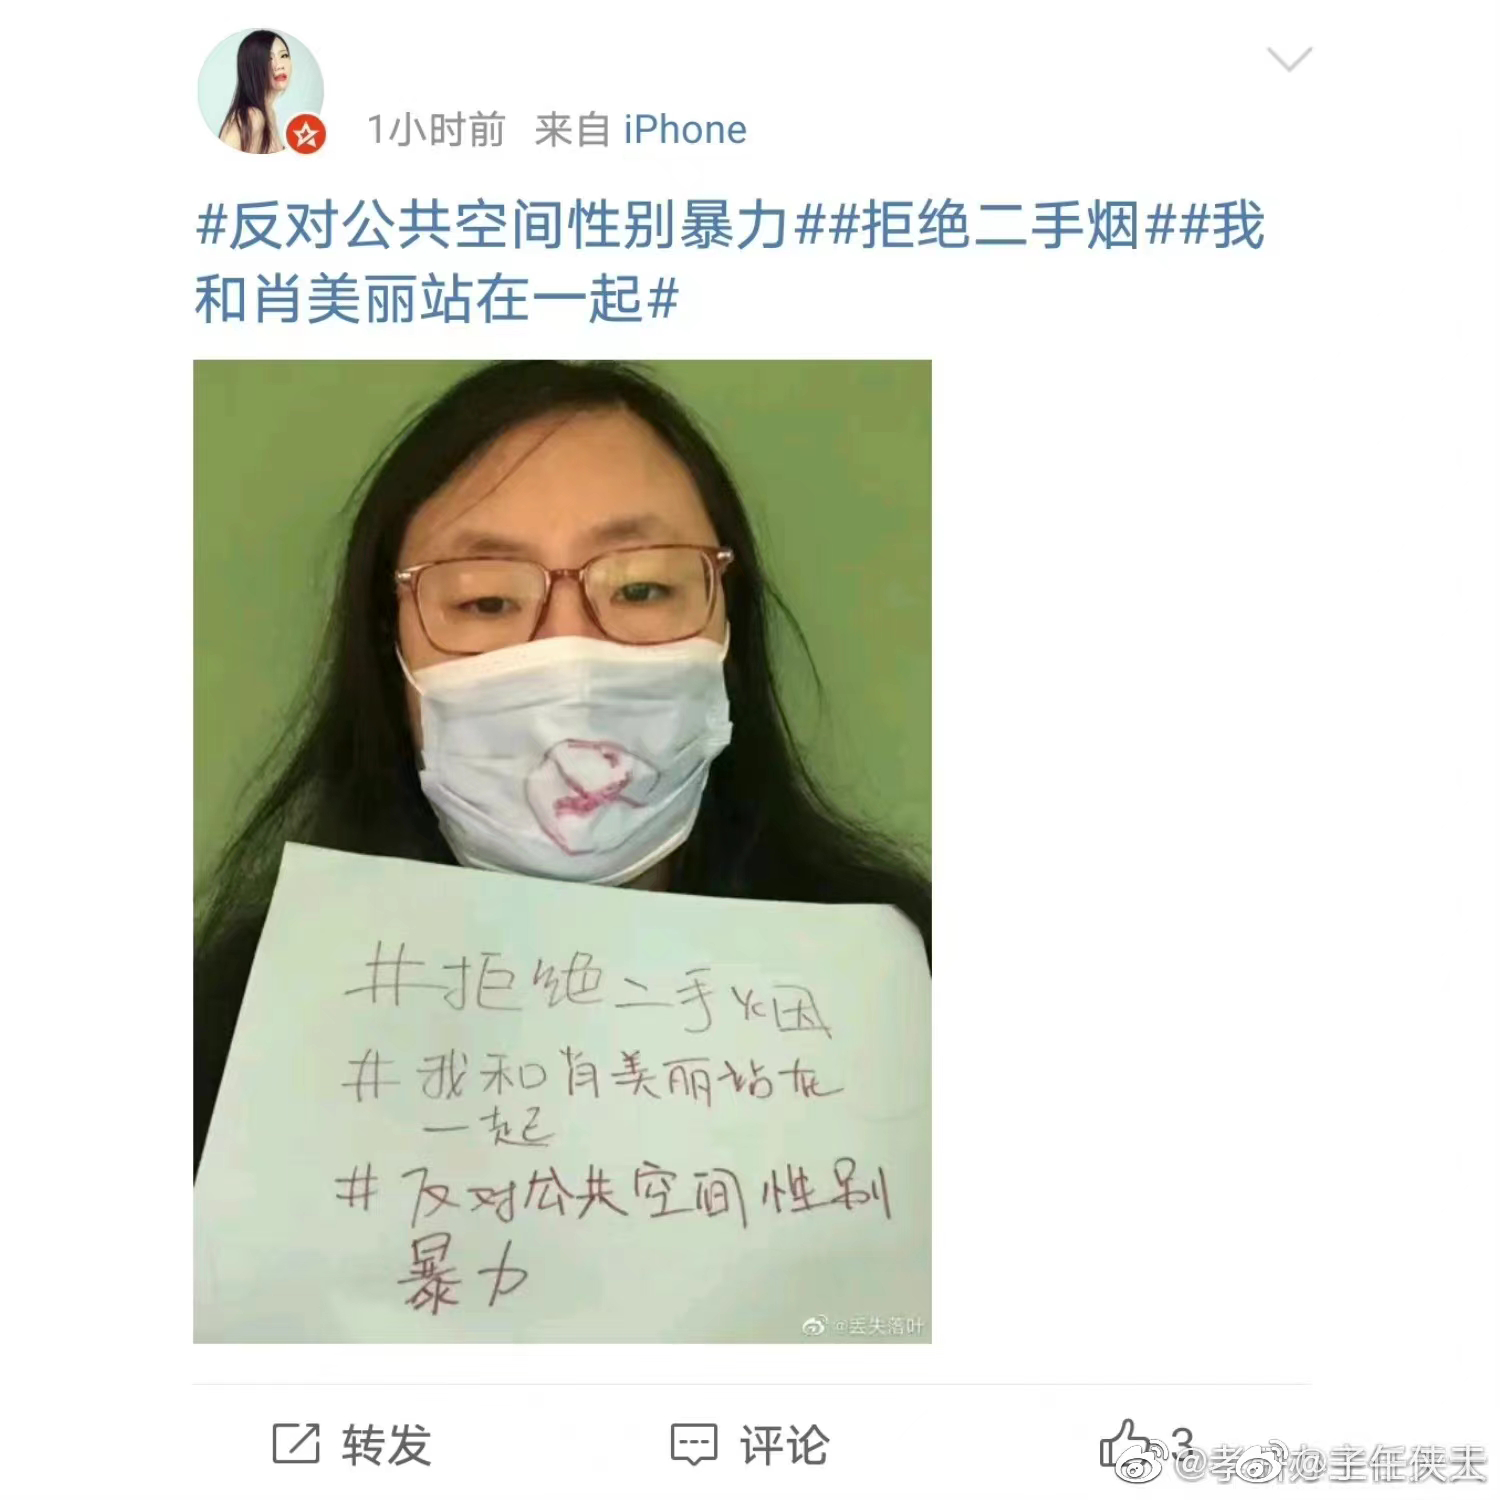 1小时前 来自 iPhone
#反对公共空间性别暴力##拒绝二手烟##我
和肖美丽站在一起#
#拒绝二手烟
#我和肖美丽站在
一起
#反对公共空间性别
暴力
@丢失落叶
转发 评论 3
主任侠夫